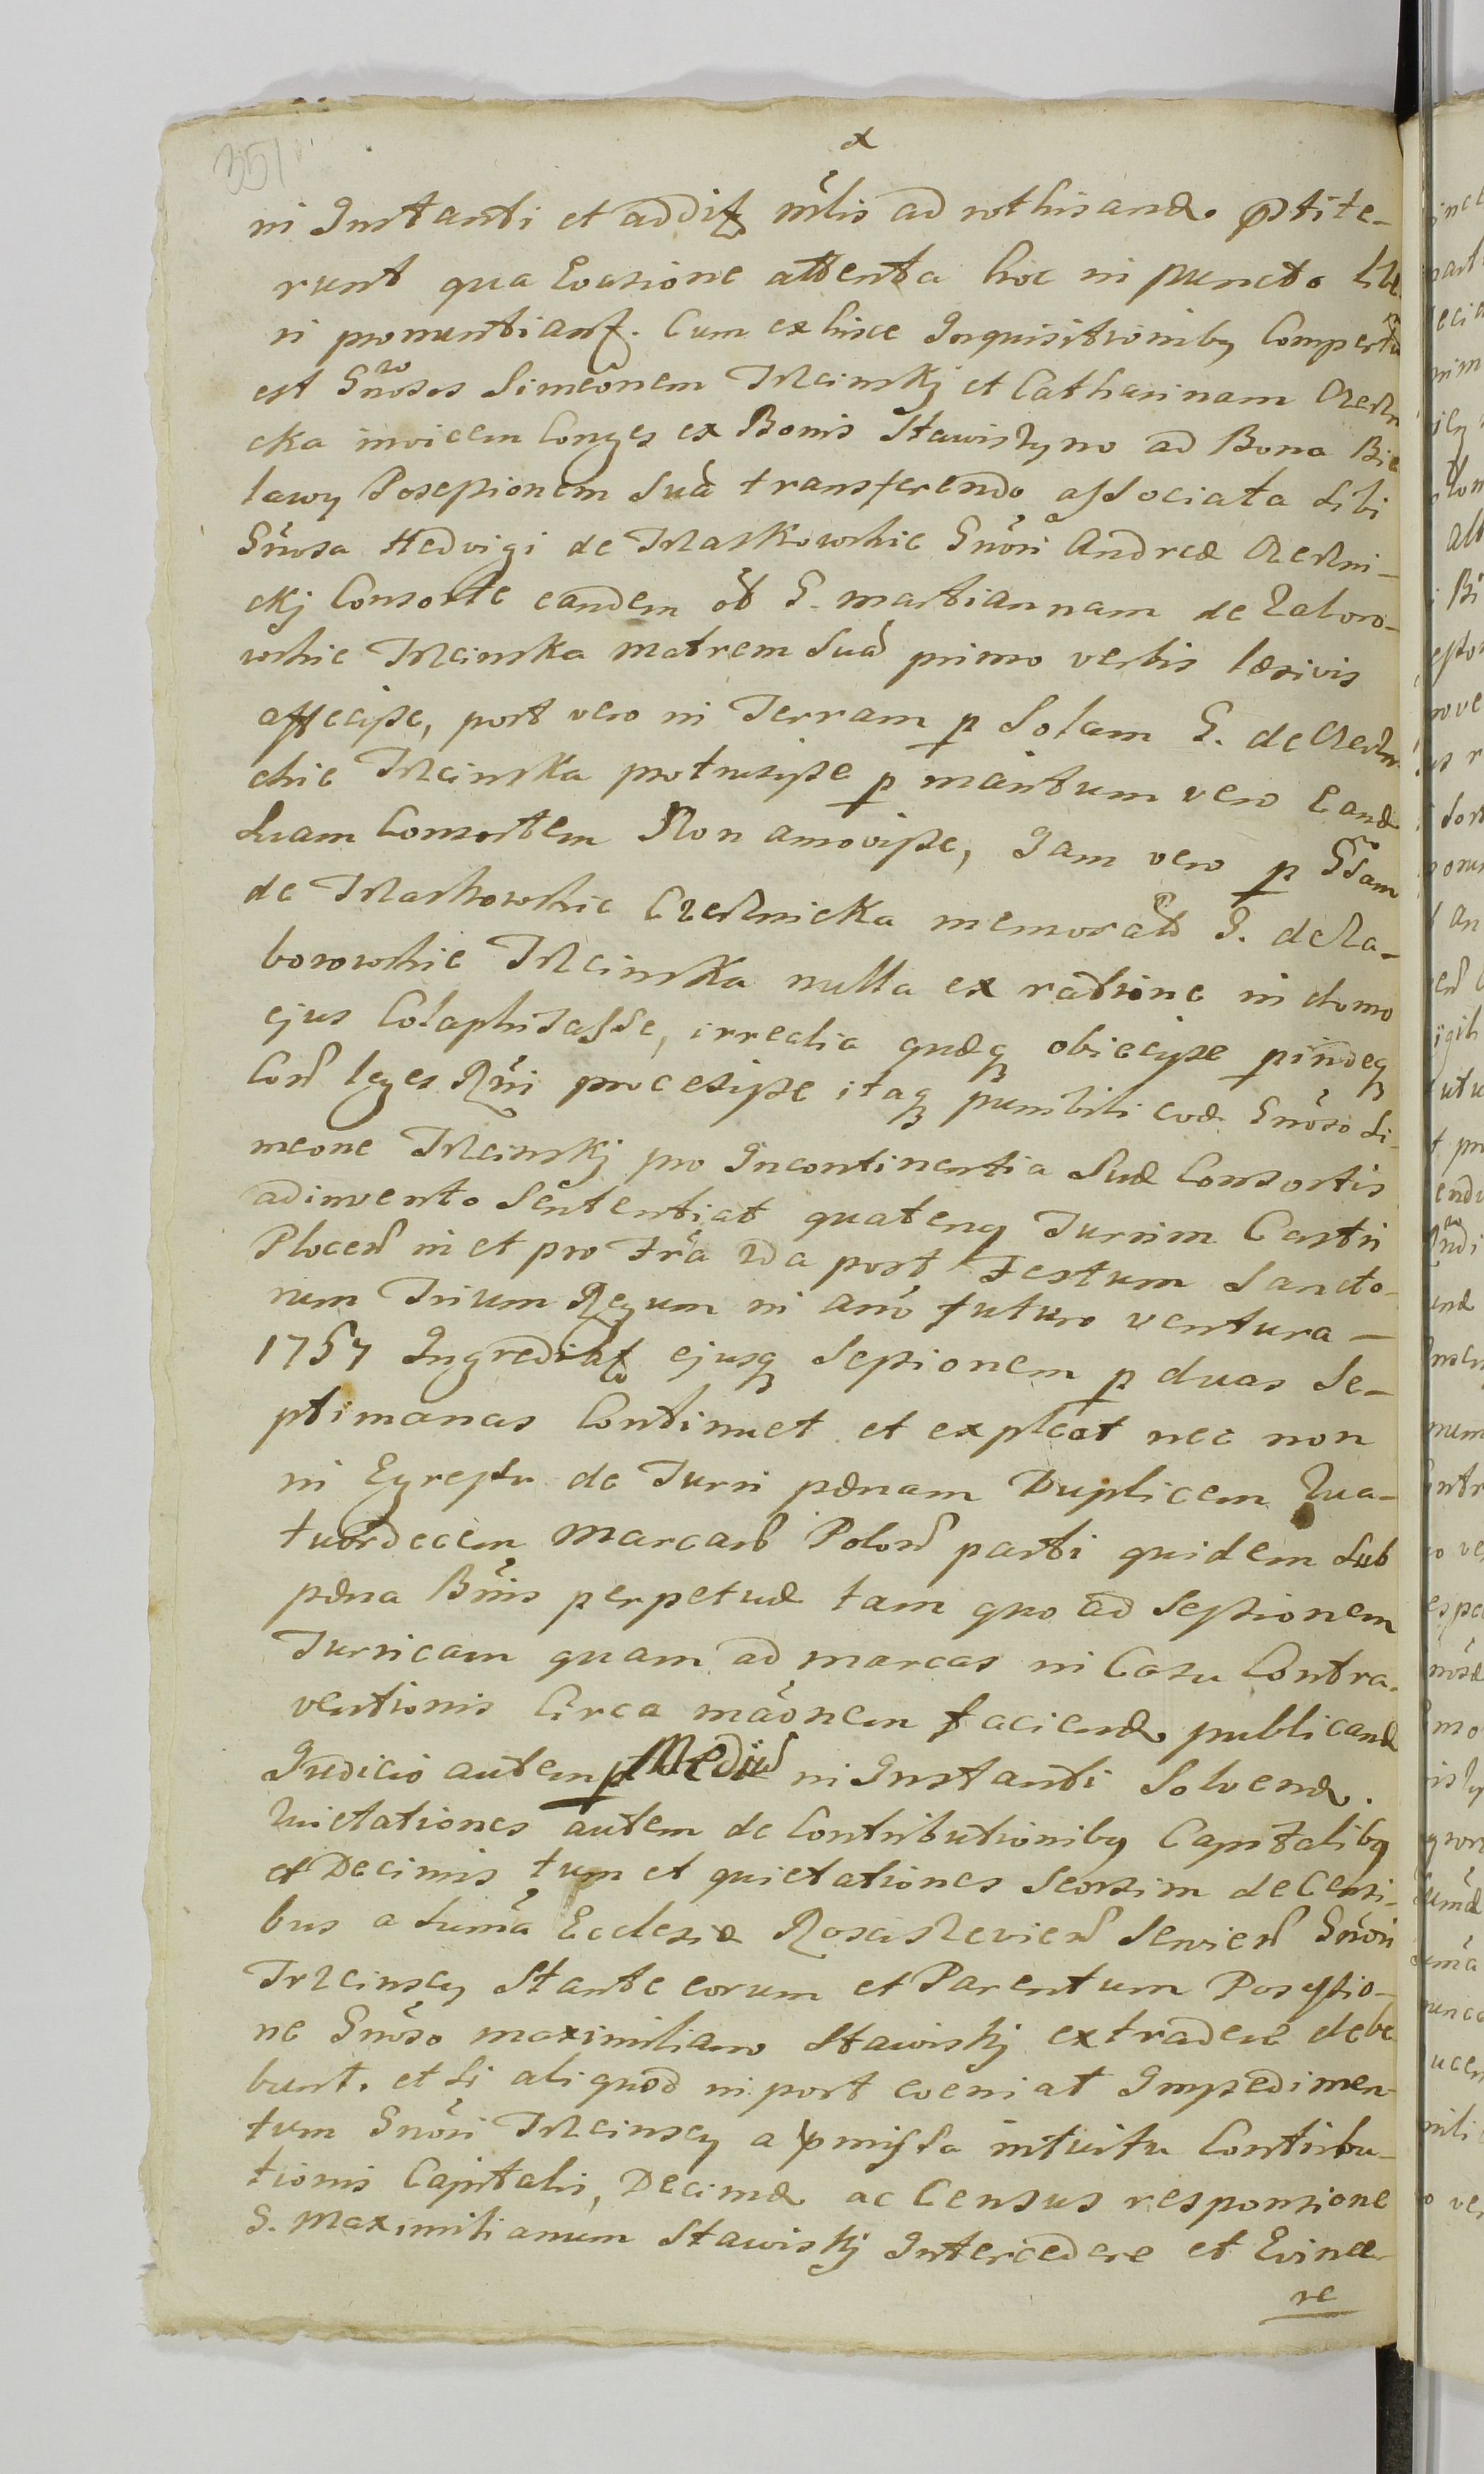 351
in Instanti et addit mlis ad rothisand. pstite-
runt qua Evasione attenta hoc in puncto libe
ri pronuntiant. Cum ex hisce Inquisitionibq Compertu
est Gnosos Simeonem Trzcinskj et Catharinam Czerzn
cka invicem Conges ex Bonis Stawiszyno ad Bona Bie
lawy Posessionem Sua transferendo associata sibi
Gnosa Hedvigi de Maskowskie Gnosi Andreæ Czerzni-
ckj Consorte eandem ob G. Mariannam de Zaboro-
wskie Trzcinska matrem Suam primo verbis læsivis
affecisse, post vero in Terram p Solam G. de Czerzni
ckie Trzcinska protrusisse p maritum vero Eand
Suam Consortem Non amovisse, Jam vero p Gsam
de Maskowskie Czerznicka memorat G. de Za-
borowskie Trzcinska nulla ex ratione in domo
ejus Colaphisasse, irrealia quæq obiecisse pindeq
Con leges Rni procesisse itaq punibili eod Gnoso Si-
meone Trzcinskj pro Incontinentia Suæ Consortis
adinvento Sententiat quatenq Turrim Castri
Plocen in et pro Fra 2da post Festum Sancto-
rum Trium Regum in anno futuro ventura —
1757 Ingrediat ejusq Sessionem p duas Se-
ptimanas Continuet et expleat nec non
in Egressu de Turri pænam Duplicem Qua-
tuordecem Marcarum Polon parti quidem Sub
pæna Bnis perpetuæ tam quo ad Sessionem
Turricam quam ad marcas in Casu Contra-
ventionis Circa maonem faciend publicand
Judicio autem p Medium in Instanti Solvend.
Quietationes autem de Contributionibq Capitalibq
et Decimis tum et quietationes Seorsim de Censi-
bus a Suma Ecclesiæ Rosciszevien Servien Gnosi
Trzcinscy Stante eorum et Parentum Posessio-
ne Gnoso Maximiliano Stawiskj extradere debe
bunt. et Si aliquod in post eveniat Impedimen-
tum Gnosi Trzcinscy a pmissa intuitu Contribu-
tionis Capitalis, Decimæ ac Census responsione
G. Maximilianum Stawiskj Intercedere et Evince-
re